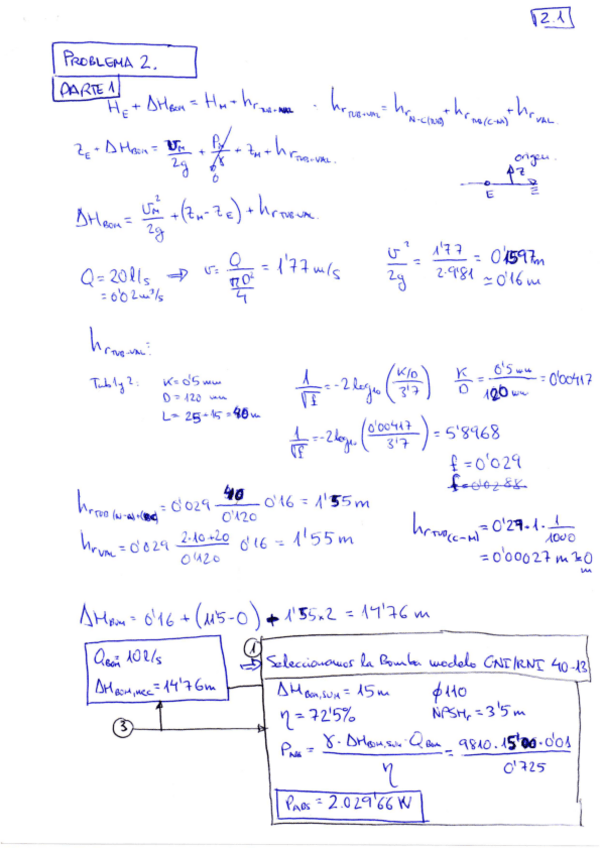 2.1
PROBLEMA 2.
PARTE 1
H_E + ΔH_BOM = H_M + h_r TUB+VAL - h_r TUB+VAL = h_r N-C(TUB) + h_r TUB(C-M) + h_r VAL
z_E + ΔH_BOM = v_M/2g + P_M/γ + z_M + h_r TUB-VAL.
0
origen
z
E
ΔH_BOM = v_M²/2g + (z_M - z_E) + h_r TUB-VAL.
Q = 20 l/s ⇒ v = Q/(πD²/4) = 1'77 m/s
= 0'02 m³/s
v²/2g = 1'77/2·9'81 = 0'1597 m
≃ 0'16 m
h_r TUB-VAL:
Tub 1 y 2: K = 0'5 mm
D = 120 mm
L = 25+15 = 40 m
1/√f = -2 log10 ((K/D)/3'7) K/D = 0'5 mm/120 mm = 0'00417
1/√f = -2 log10 (0'00417/3'7) = 5'8968
f = 0'029
f = 0'0288
= 0'029 40/0'120 0'16 = 1'55 m
h_r VAL = 0'029 2·10+20/0'120 0'16 = 1'55 m
h_r TUB(C-M) = 0'29·1·1/1000
= 0'00027 m ≃ 0 m
ΔH_BOM = 0'16 + (11'5-0) + 1'55x2 = 14'76 m
Q_BOM = 10 l/s
ΔH_BOM,NEC = 14'76 m
1
⇒ Seleccionamos la Bomba modelo CNI/RNI 40-13
ΔH_BOM,SUM = 15 m φ110
η = 72'5% NPSH_r = 3'5 m
3
P_ABS = γ·ΔH_BOM,SUM·Q_BOM/η = 9810·15'00·0'01/0'725
P_ABS = 2.029'66 W